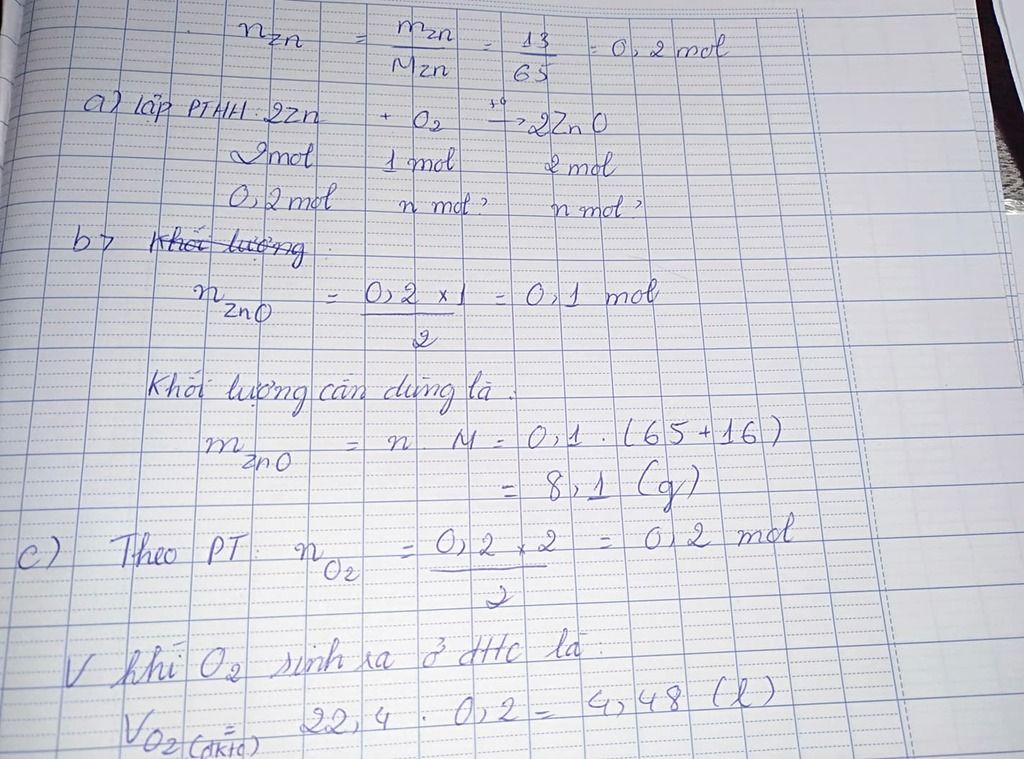 n Zn = mZn / MZn = 13 / 65 = 0,2 mol
a) lập PTHH: 2Zn + O2 t° → 2ZnO
2mol 1 mol 2 mol
0,2mol n mol? n mol?
b> Khối lượng
n ZnO = 0,2 x 1 / 2 = 0,1 mol
Khối lượng cần dùng là.
m ZnO = n. M = 0,1 . (65+16)
= 8,1 (g)
c) Theo PT: n O2 = 0,2 x 2 / 2 = 0,2 mol
V khí O2 sinh ra ở đktc là:
V O2 (đktc) = 22,4 . 0,2 = 4,48 (l)